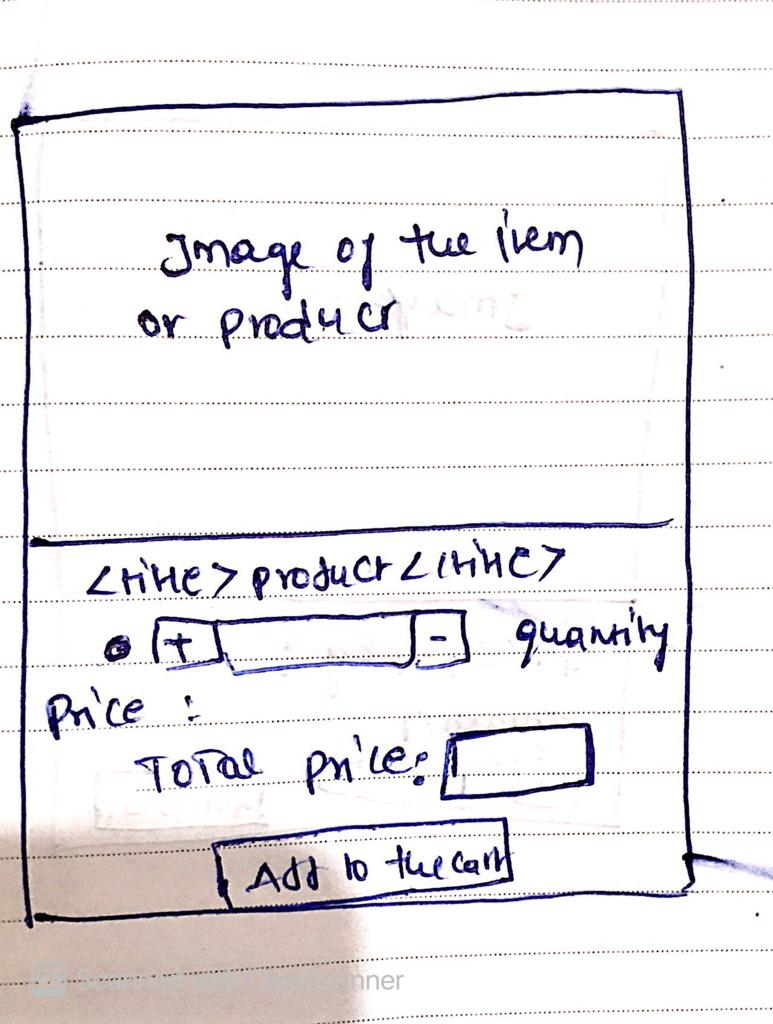 Image of the item
or product
<title> product </title>
+ - quantity
Price :
Total price:
Add to the cart
Scanned with CamScanner